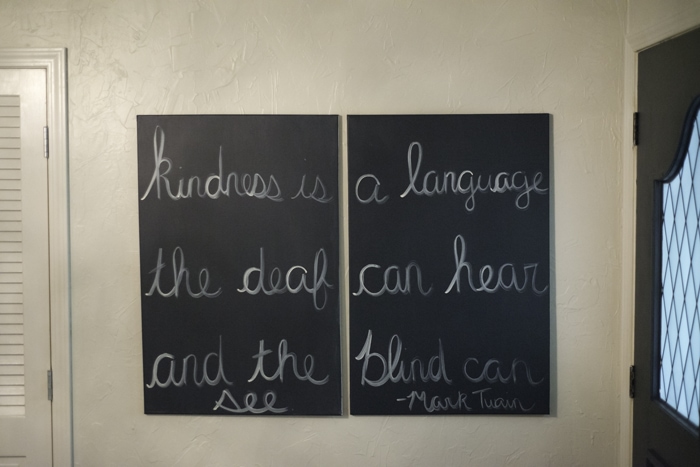 kindness is a language
the deaf can hear
and the blind can
see
-Mark Twain